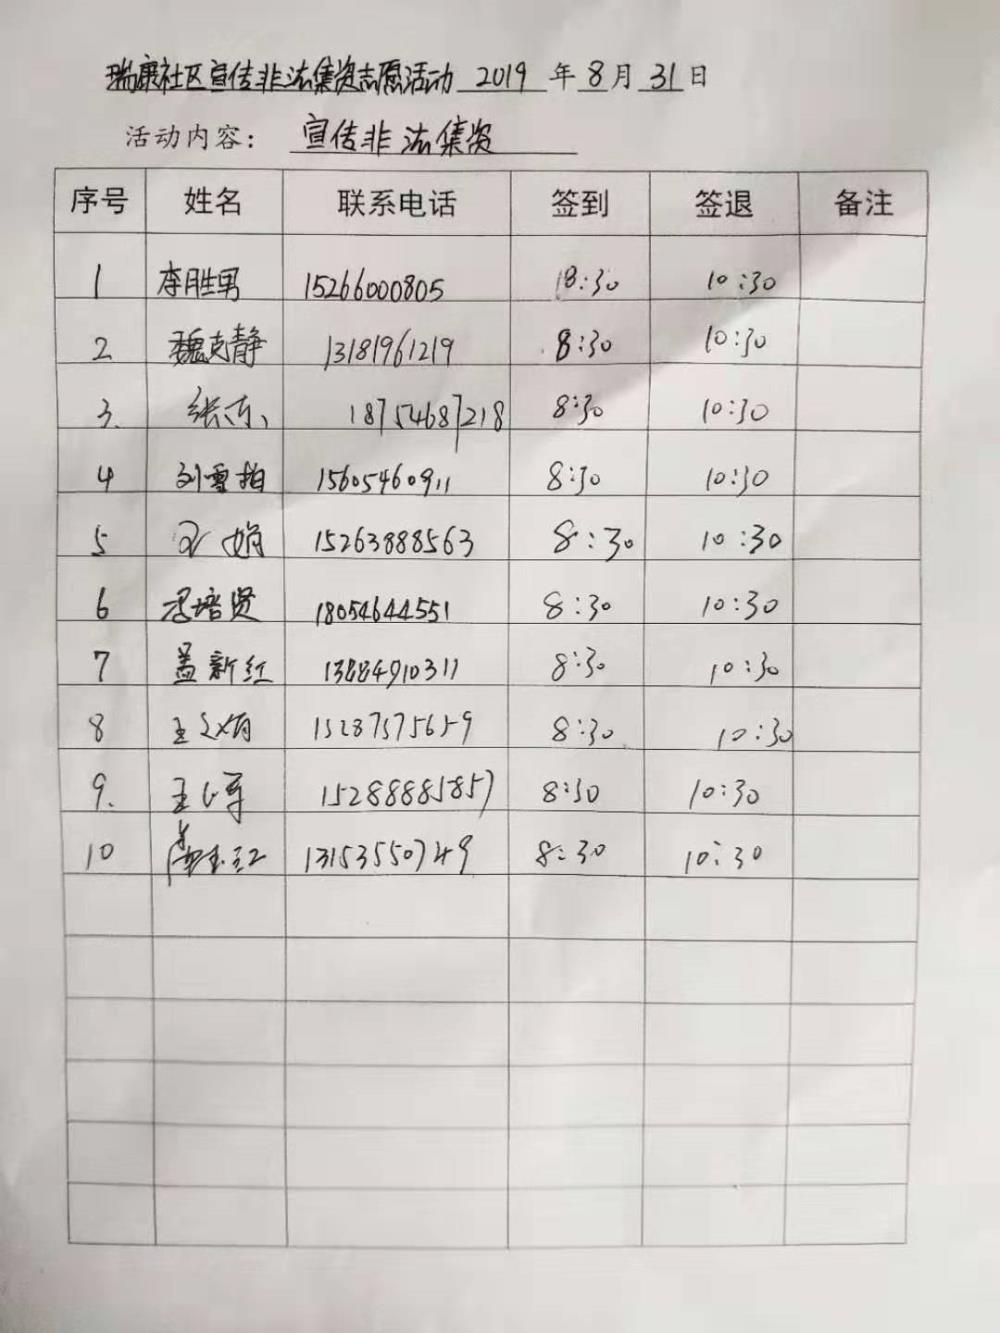 瑞康社区宣传非法集资志愿活动 2019 年 8 月 31 日
活动内容: 宣传非法集资
序号 姓名 联系电话 签到 签退 备注
1 李胜男 15266000805 18:30 10:30
2 魏克静 13181961219 8:30 10:30
3. 张 18754687218 8:30 10:30
4 刘雪柏 15605460911 8:30 10:30
5 娟 15263888563 8:30 10:30
6 培贤 18054644551 8:30 10:30
7 盖新红 13884910311 8:30 10:30
8 王 娟 15287575659 8:30 10:30
9. 王 军 15288885857 8:30 10:30
10 13153550749 8:30 10:30